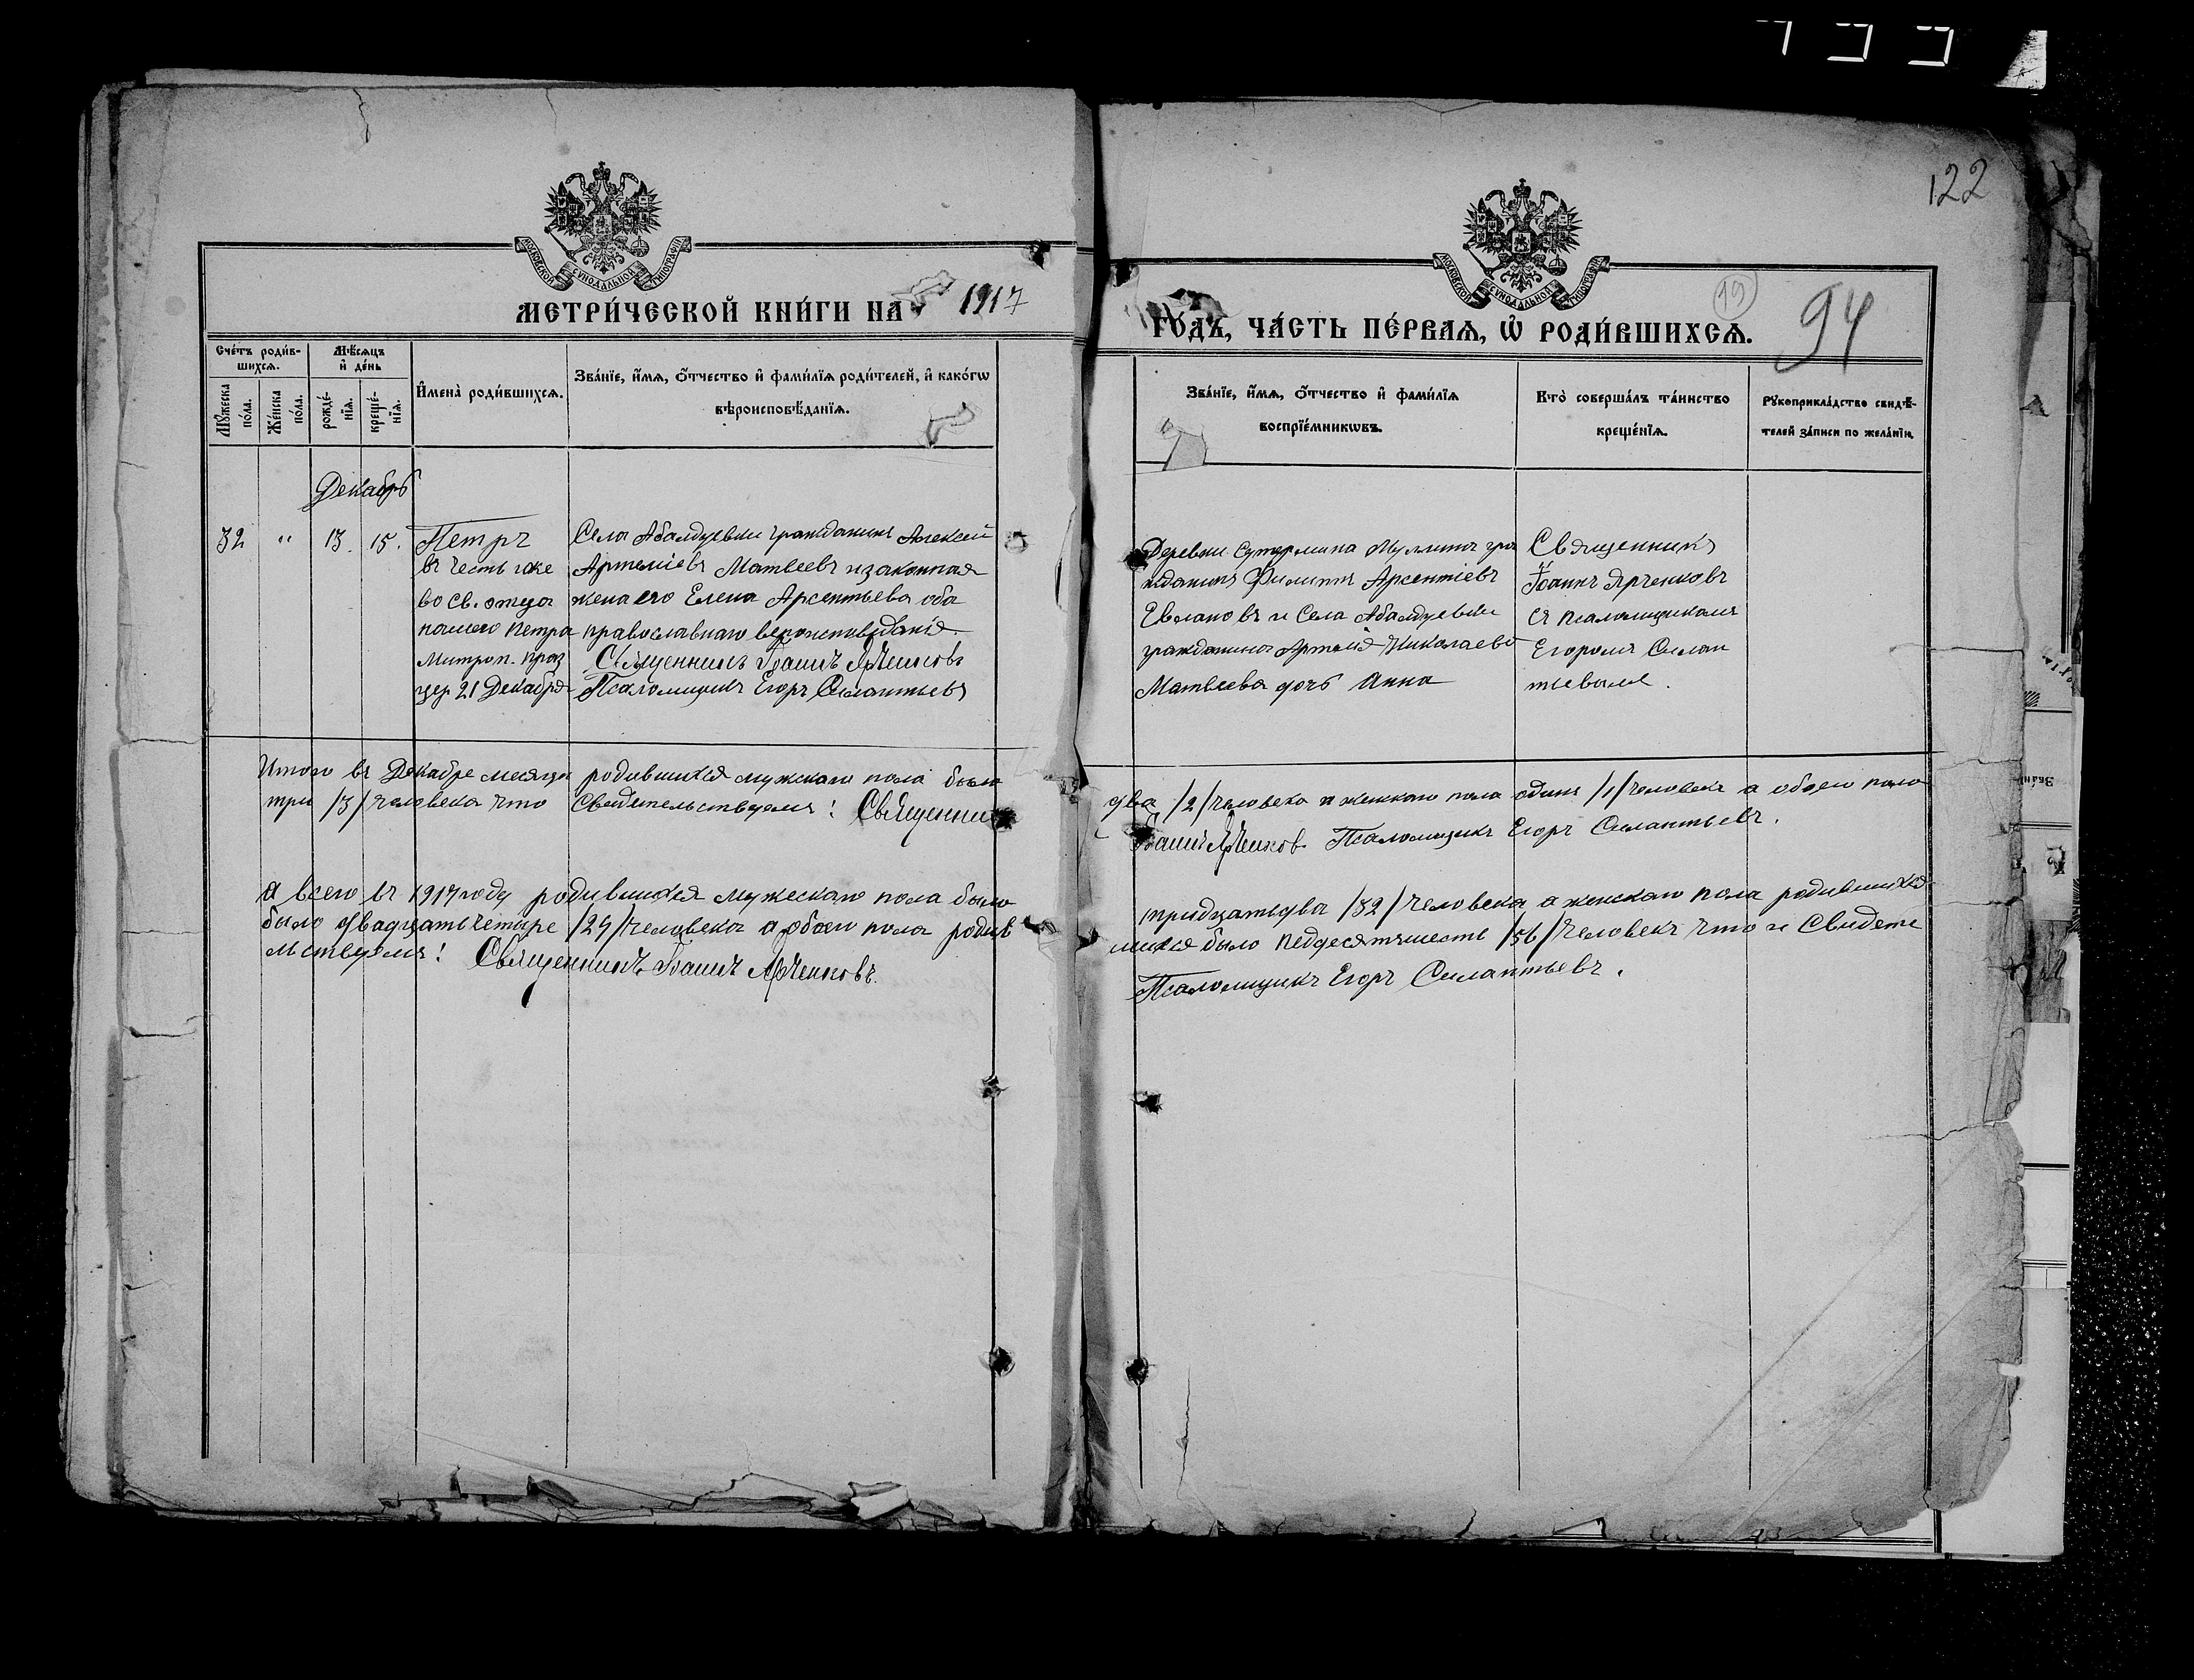 122
МОСКОВСКОЙ СУНОДАЛЬНОЙ ТИПОГРАФІИ
МОСКОВСКОЙ СУНОДАЛЬНОЙ ТИПОГРАФІИ
19
94
МЕТРИ́ЧЕСКОЙ КНИ́ГИ НА 1917
ГО́ДЪ, ЧА́СТЬ ПЕ́РВАѦ, Ѡ҆ РОДИ́ВШИХСѦ.
Сче́тъ роди́в-
шихсѧ.
Мѣ́сѧцъ
и҆ де́нь
Мꙋ́жеска
по́ла.
Же́нска
по́ла.
рожде́-
нїѧ.
креще́-
нїѧ.
И҆мена̀ роди́вшихсѧ.
Зва́нїе, и҆́мѧ, ѻ҆́тчество и҆ фами́лїѧ роди́телей, и҆ како́гѡ
вѣроисповѣ́данїѧ.
Зва́нїе, и҆́мѧ, ѻ҆́тчество и҆ фами́лїѧ
воспрїе́мникѡвъ.
Кто̀ соверша́лъ та́инство
креще́нїѧ.
Рꙋкоприкла́дство свидѣ́-
телей за́писи по жела́нїю.
Декабрь
32 " 13. 15.
Петръ
въ честь иже
во св. отца
нашего Петра
Митроп. праз
цер 21 Декабря
Села Абалдуевки гражданинъ Алексей
Артеміевъ Матвеевъ и законная
жена его Елена Арсентьева оба
православнаго вероисповѣданія.
Священникъ Іоаннъ Ярченковъ
Псаломщикъ Егоръ Силантьевъ
Деревни Сутермина Муллина гра
жданинъ Филиппъ Арсентіевъ
Евлановъ и Села Абалдуевки
гражданина Артемія Николаева
Матвеева дочь Анна
Священникъ
Іоаннъ Ярченковъ
съ псаломщикомъ
Егоромъ Силан
тьевымъ.
Итого въ Декабре месяце родившихся мужскаго пола было
два /2/ человека а женскаго пола одинъ /1/ человекъ а обоего пола
три /3/ человека что Свидетельствуемъ: Священникъ
Іоаннъ Ярченков. Псаломщикъ Егоръ Силантьевъ.
А всего въ 1917 году родившихся мужескаго пола было
тридцатьдва /32/ человека а женскаго пола родившихся
было двадцатьчетыре /24/ человека а обоего пола родив
шихся было педдесятъшесть /56/ человекъ что и Свидете
льствуемъ: Священникъ Іоаннъ Ярченковъ.
Псаломщикъ Егоръ Силантьевъ.